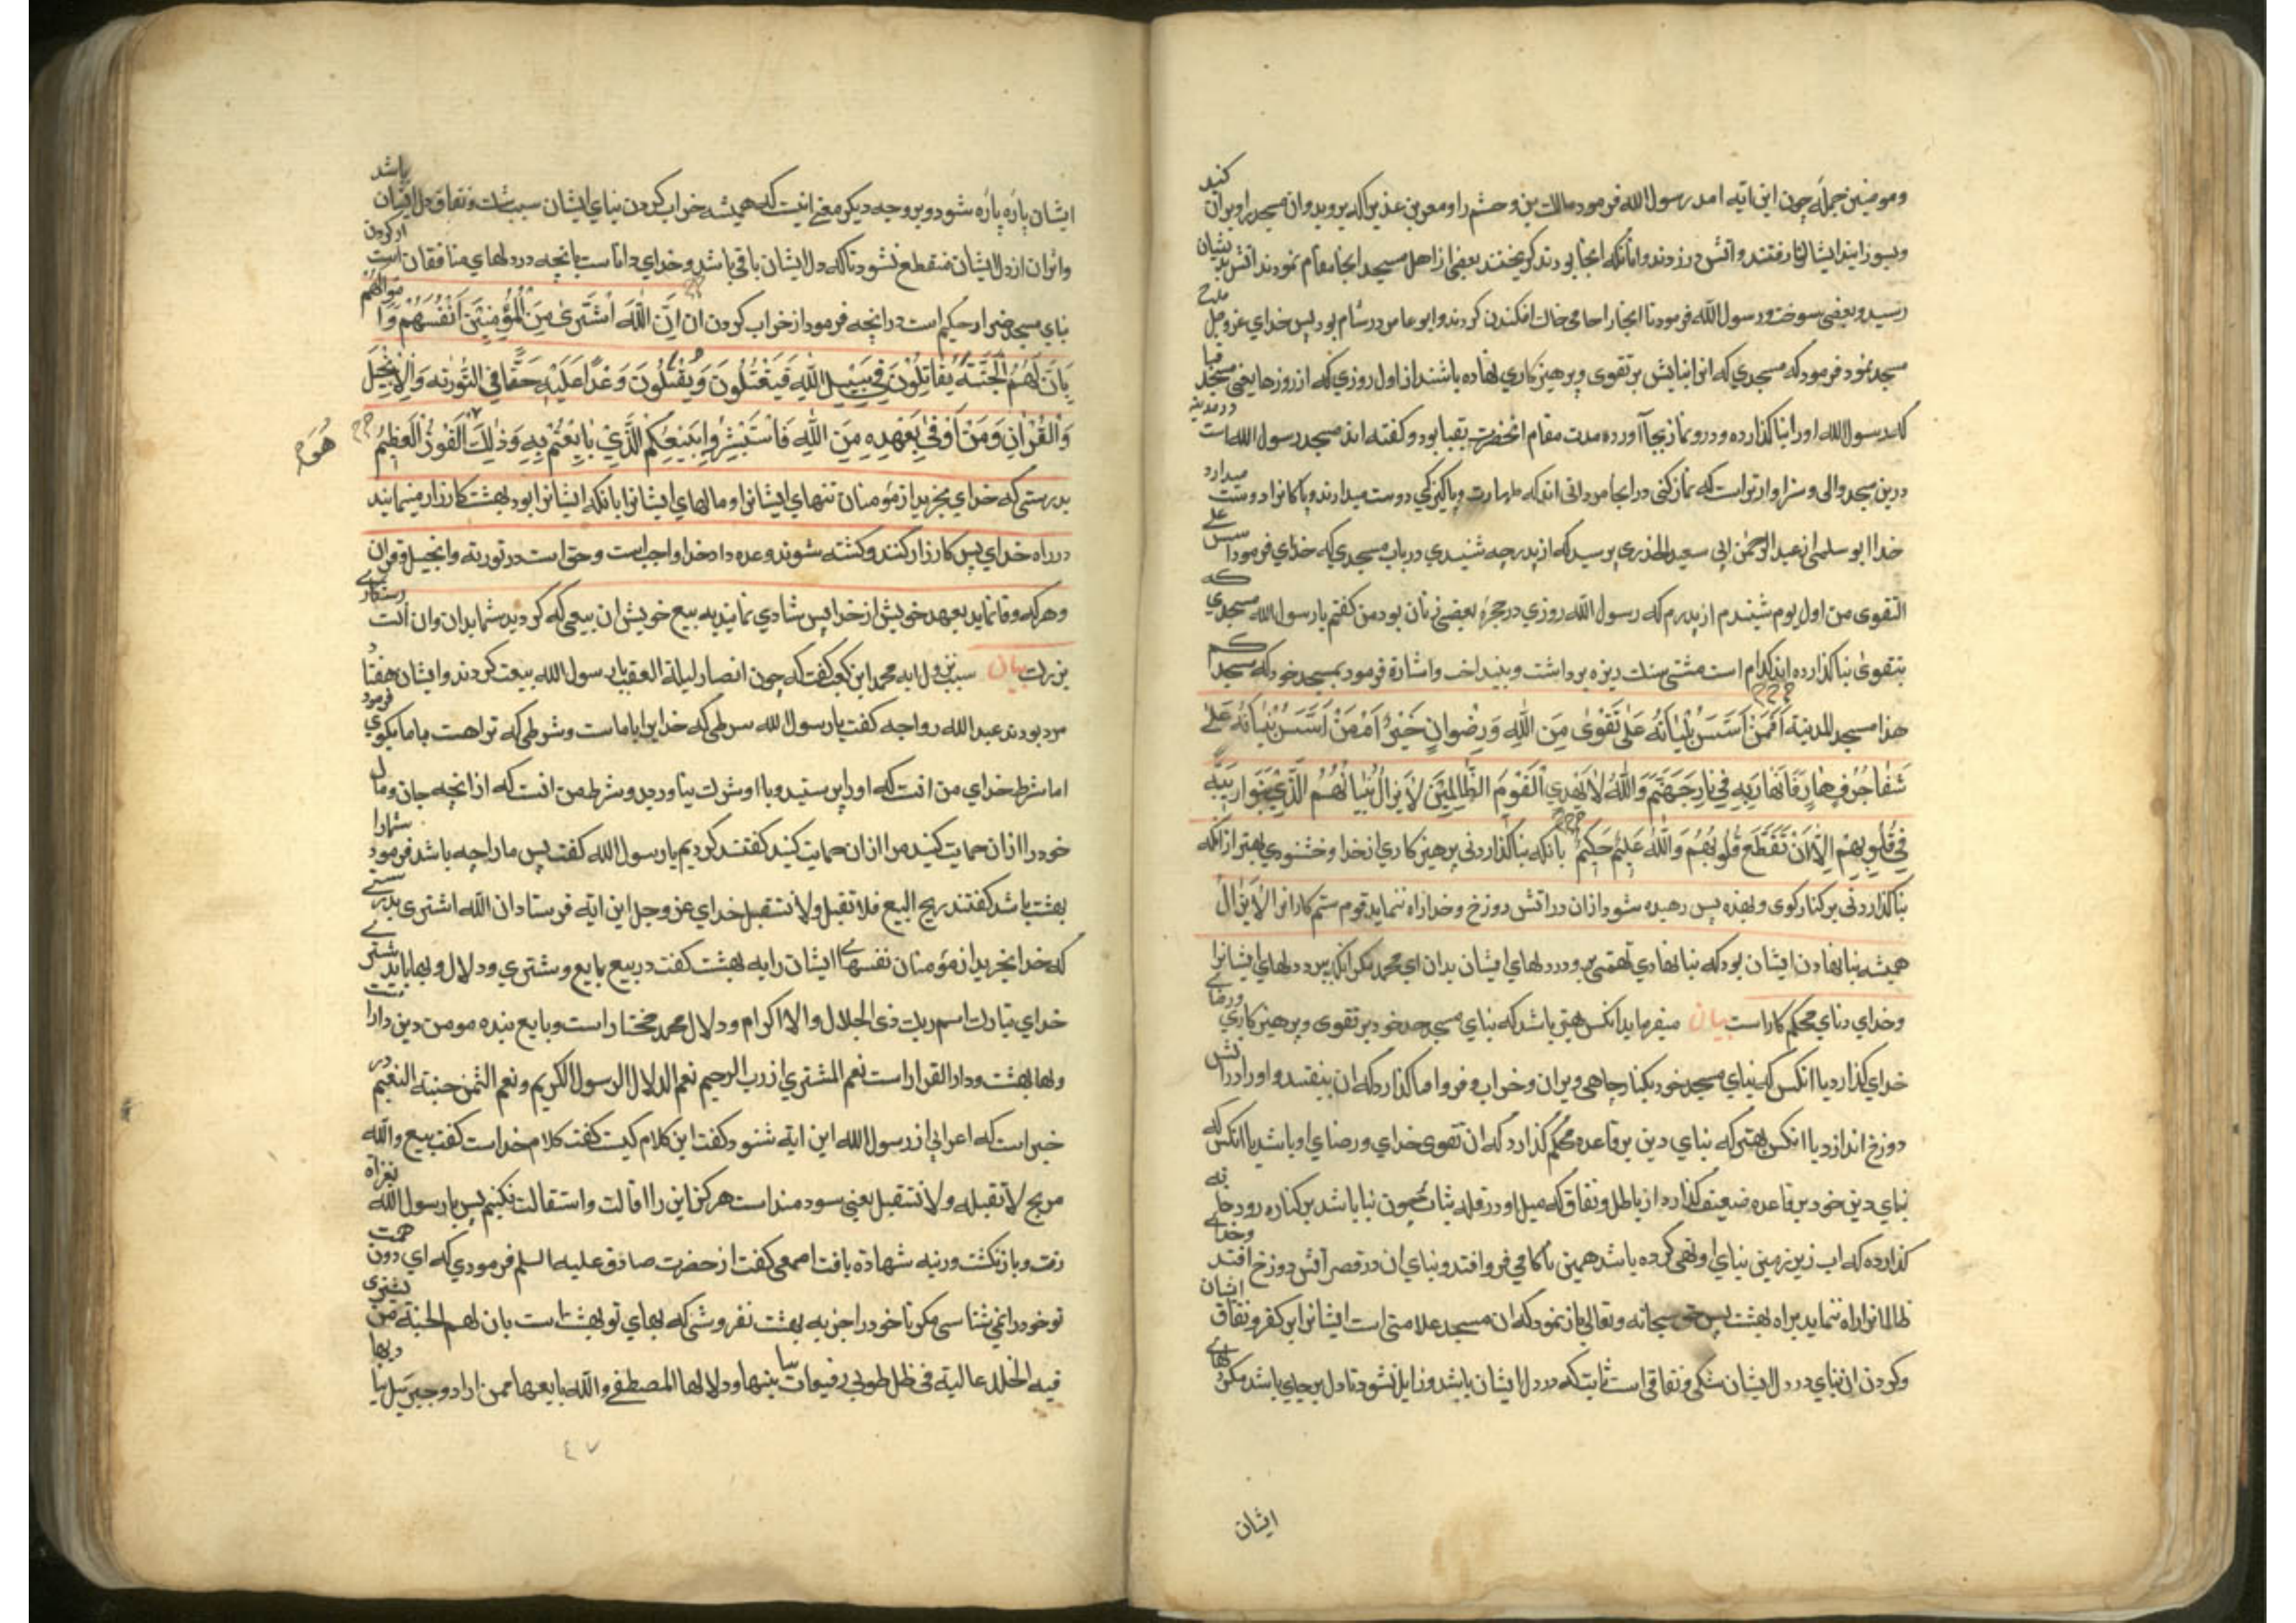 ومومنین جمله چون این ایه امد رسول الله فرمود مالك بن وحشم را ومعن بن عدی را که بروید وان مسجد را ویران کنید
وبسوزانید ایشان رفتند واتش در زدند وانانکه انجا بودند کریختند بعضی از اهل مسجد انجا مقام نمودند اتش بدیشان
رسید وبعضی سوخت ورسول الله فرمود تا انجا را جای خاك افکندن کردند وابو عامر در شام بود پس خدای عز وجل مدح
مسجد نمود فرمود که مسجدی که انرا بنایش بر تقوی وپرهیزکاری نهاده باشند از اول روزی که از روزها یعنی مسجد قبا
که رسول الله اورا بنا کذارده ودرو نماز بجا آورده مدت مقام انحضرت بقبا بود وکفته اند مسجد رسول الله است در مدینه
درین مسجد والی وسزاوارتر است که نماز کنی در انجا مردانی اند که طهارت وپاکیزکی دوست میدارند وپاکانرا دوست میدارد
خدا ابو سلمه از عبد الرحمن ابی سعید الخدری پرسید که از پدر چه شنیدی در باب مسجدی که خدای فرمود اسس علی
التقوی من اول یوم شنیدم از پدرم که رسول الله روزی در حجره بعضی زنان بود من کفتم یا رسول الله مسجدی که
بتقوی بنا کذارده اند کدام است مشتی سنك ریزه برداشت وبینداخت واشارة فرمود بمسجد خود که مسجدکم
هذا مسجد المدینة اَفَمَنْ اَسَّسَ بُنْیَانَهُ عَلٰی تَقْوٰی مِنَ اللّٰهِ وَرِضْوَانٍ خَیْرٌ اَمْ مَنْ اَسَّسَ بُنْیَانَهُ عَلٰی
شَفَا جُرُفٍ هَارٍ فَانْهَارَ بِهِ فِی نَارِ جَهَنَّمَ وَاللّٰهُ لَا یَهْدِی الْقَوْمَ الظَّالِمِینَ لَا یَزَالُ بُنْیَانُهُمُ الَّذِی بَنَوْا رِیبَةً
فِی قُلُوبِهِمْ اِلَّا اَنْ تَقَطَّعَ قُلُوبُهُمْ وَاللّٰهُ عَلِیمٌ حَکِیمٌ بانکه بنا کذاردنی پرهیزکاری از خدا وخشنودی بهتر از انکه
بنا کذاردنی بر کنار کوی پس رهیده شود ازان در اتش دوزخ وخدا راه ننماید قوم ستم کارانرا لا یزال
همیشه بنا نهادن ایشان بود که بنا نهادی تهمتی بود در دلهای ایشان بدان ای محمد مکر انکه در دلهای ایشانرا
وخدای دنای محکم کار است بیان میفرماید انکس بهتر باشد که بنای مسجد خود بر تقوی وپرهیزکاری ورضای
خدای کذارد یا انکس که بنای مسجد خود بکنار چاهی ویران وخراب وفرو اما کذارد که ان بیفتد واورا در اتش
دوزخ اندازد یا انکس بهتر که بنای دین بر قاعده محکم کذارد که ان تقوی خدای ورضای او باشد یا انکس که
بنای دین خود بر قاعده ضعیف کذارد از باطل ونفاق که میل او در قله ثبات چون بنا باشد بر کناره رود خانه
کذارده که اب زیر زمین بنای او تهی کرده باشد همین ناکامی فرو افتد وبنای ان در قعر آتش دوزخ افتد وخدای
ظالمانرا راه ننماید براه بهشت پس حق سبحانه وتعالی باز نمود که ان مسجد علامتی است ایشانرا بر کفر ونفاق ایشان
وکردن ان بنای در دل ایشان شکی ونفاقی است ثابت که در دل ایشان باشد وزایل نشود تا دل بر جای باشد مکر دلهای
ایشان
ایشان پاره پاره شود وبر وجه دیکر معنی انست که همیشه خراب کردن بنای ایشان سبب شك ونفاق دل ایشان باشد
واثر ان از دل ایشان منقطع نشود تا که دل ایشان باقی باشد وخدای دانا ست بانچه در دلهای منافقان است از کردن
بنای مسجد ضرار حکیم است در انچه فرمود از خراب کردن ان اِنَّ اللّٰهَ اشْتَرٰی مِنَ الْمُؤْمِنِینَ اَنْفُسَهُمْ وَاَمْوَالَهُمْ
بِاَنَّ لَهُمُ الْجَنَّةَ یُقَاتِلُونَ فِی سَبِیلِ اللّٰهِ فَیَقْتُلُونَ وَیُقْتَلُونَ وَعْدًا عَلَیْهِ حَقًّا فِی التَّوْرٰیةِ وَالْاِنْجِیلِ
وَالْقُرْاٰنِ وَمَنْ اَوْفٰی بِعَهْدِهِ مِنَ اللّٰهِ فَاسْتَبْشِرُوا بِبَیْعِکُمُ الَّذِی بَایَعْتُمْ بِهِ وَذٰلِكَ الْفَوْزُ الْعَظِیمُ
هُوَ
بدرستی که خدای بخرید از مؤمنان تنهای ایشانرا ومالهای ایشانرا بانکه ایشانرا بود بهشت کارزار مینمایند
در راه خدای پس کارزار کنند وکشته شوند وعده داد خدا واجب است وحق است در توریة وانجیل وقران
وهر که وفا نماید بعهد خویش از خدا پس شادی نمایید به بیع خویش ان بیعی که کردید شما بدان وان انست رستکاری
بزرك بیان سبب نزول ایه محمد ابن کعب کفت که چون انصار لیلة العقبه با رسول الله بیعت کردند وایشان هفتاد
مرد بودند عبد الله رواحه کفت یا رسول الله شرطی که خدایرا با ماست وشرطی که تراهست با ما بکوی فرمود
اما شرط خدای من انست که اورا پرستید وبا او شرك نیاورید وشرط من انست که از انچه جان ومال
خود را ازان حمایت کنید مرا ازان حمایت کنید کفتند کردیم یا رسول الله کفت پس ما را چه باشد فرمود شما را
بهشت باشد کفتند ربح البیع فلا تقبل ولا نستقبل خدای عز وجل این ایه فرستاد ان الله اشتری بدرستی
که خدا بخرید از مؤمنان نفسهای ایشان را به بهشت کفت در بیع بایع ومشتری ودلال وبها باید مشتری
خدای تبارك اسم ربك ذی الجلال والاکرام ودلال محمد مختار است وبایع بنده مومن دین دارا ست
وبها بهشت ودار القرار است نعم المشتری از رب الرحیم نعم الدلال الرسول الکریم ونعم الثمن جنة النعیم در
خبر است که اعرابی از رسول الله این ایة شنود کفت این کلام کیست کفت کلام خداست کفت بیع والله
مربح لا تقبله ولا نستقبل یعنی سود منداست هرکز این را اقالت واستقالت نکنیم پس با رسول الله بغزاه
رفت وباز نکشت ورتبه شهادة یافت اصمعی کفت از حضرت صادق علیه السلم فرمودی که ای دون همت
تو خود را نمی شناسی مکر تا خود را جز به بهشت نفروشی که بهای تو بهشت است بان لهم الجنة من یشتری
فیه الخلد عالیة فی ظل طوبی رفیعات بینها ودلالها المصطفی والله بایعها ممن اراد وجبریل
٤٧